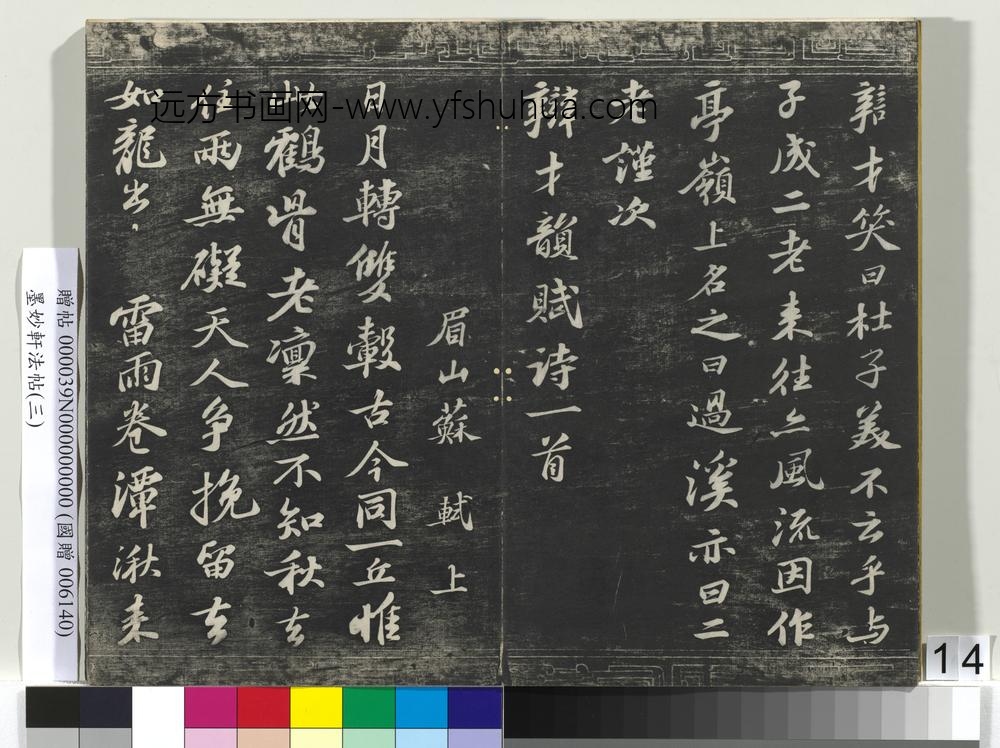 辯才笑曰杜子美不云乎与
子成二老来往亦風流因作
亭嶺上名之曰過溪亦曰二
老謹次
辯才韻賦诗一首
眉山蘇軾上
日月轉雙轂古今同一丘惟
此鶴骨老凛然不知秋去
住兩無礙天人争挽留去
如龍出雷雨卷潭湫来
远方书画网-www.yfshuhua.com
贈帖 000039N000000000 (國贈 006140)
墨妙軒法帖(三)
14